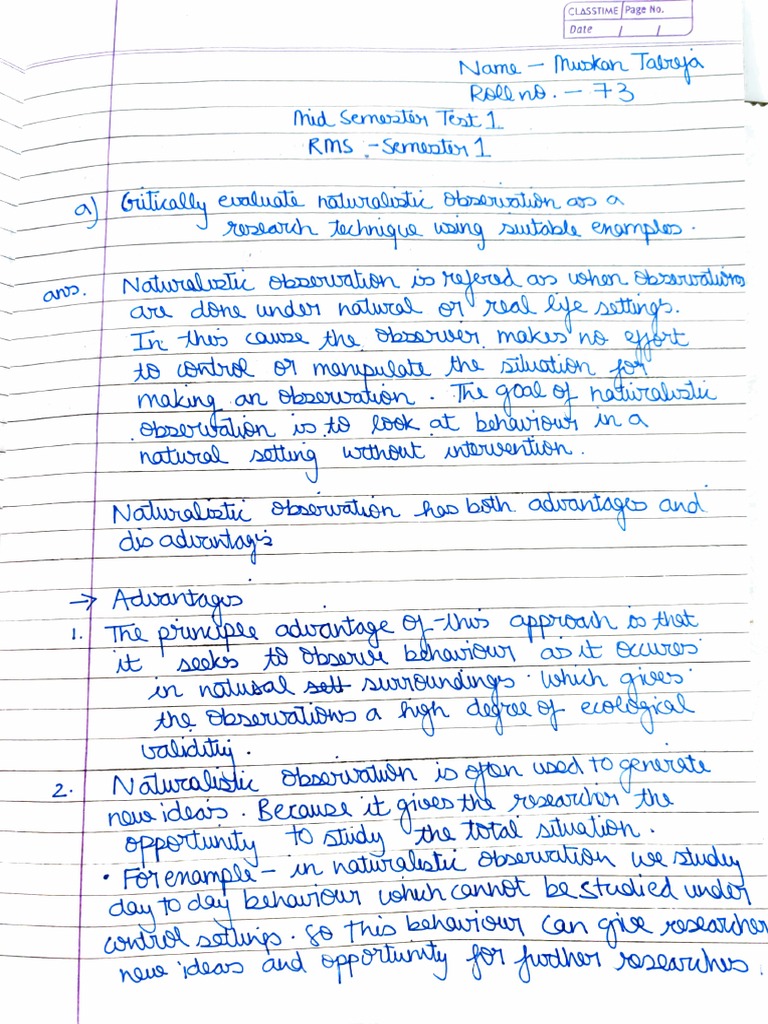 CLASSTIME Page No.
Date / /
Name - Muskan Talreja
Roll no. - 73
Mid Semester Test 1
RMS - Semester 1
a) Critically evaluate naturalistic observation as a
research technique using suitable examples.
ans. Naturalistic observation is refered as when observations
are done under natural or real life settings.
In this cause the observer makes no effort
to control or manipulate the situation for
making an observation. The goal of naturalistic
observation is to look at behaviour in a
natural setting without intervention.
Naturalistic observation has both advantages and
disadvantages
→ Advantages
1. The principle advantage of this approach is that
it seeks to observe behaviour as it occures
in natural sett surroundings which gives
the observations a high degree of ecological
validity.
2. Naturalistic observation is often used to generate
new ideas. Because it gives the researcher the
opportunity to study the total situation.
• For example - in naturalistic observation we study
day to day behaviour which cannot be studied under
control settings. So this behaviour can give researcher
new ideas and opportunity for further researches.